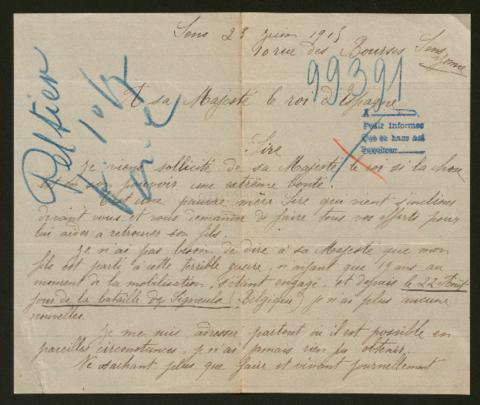 Sens 23 juin 1915
10 rue des Bourses Sens
Yonne
99391
Peltier
A sa Majesté le roi d'Espagne
A
Pedir informes
Sire
Je viens sollicité de sa Majesté le roi si la chose
est en son pouvoir une extrème bonté.
C'est une pauvre mère Sire qui vient s'incliner
devant vous, et vous demander de faire tous vos efforts pour
lui aider a retrouver son fils.
Je n'ai pas besoin de dire à sa Majesté que mon
fils est parti à cette terrible guerre, n'ayant que 19 ans au
moment de la mobilisation, s'étant engagé, et depuis le 22 Août
jour de la bataille de (Belgique) je n'ai plus aucune
nouvelles.
Je me suis adresser partout où il est possible en
pareilles circonstances, je n'ai jamais rien pu obtenir.
Ne sachant plus que faire et vivant journellement